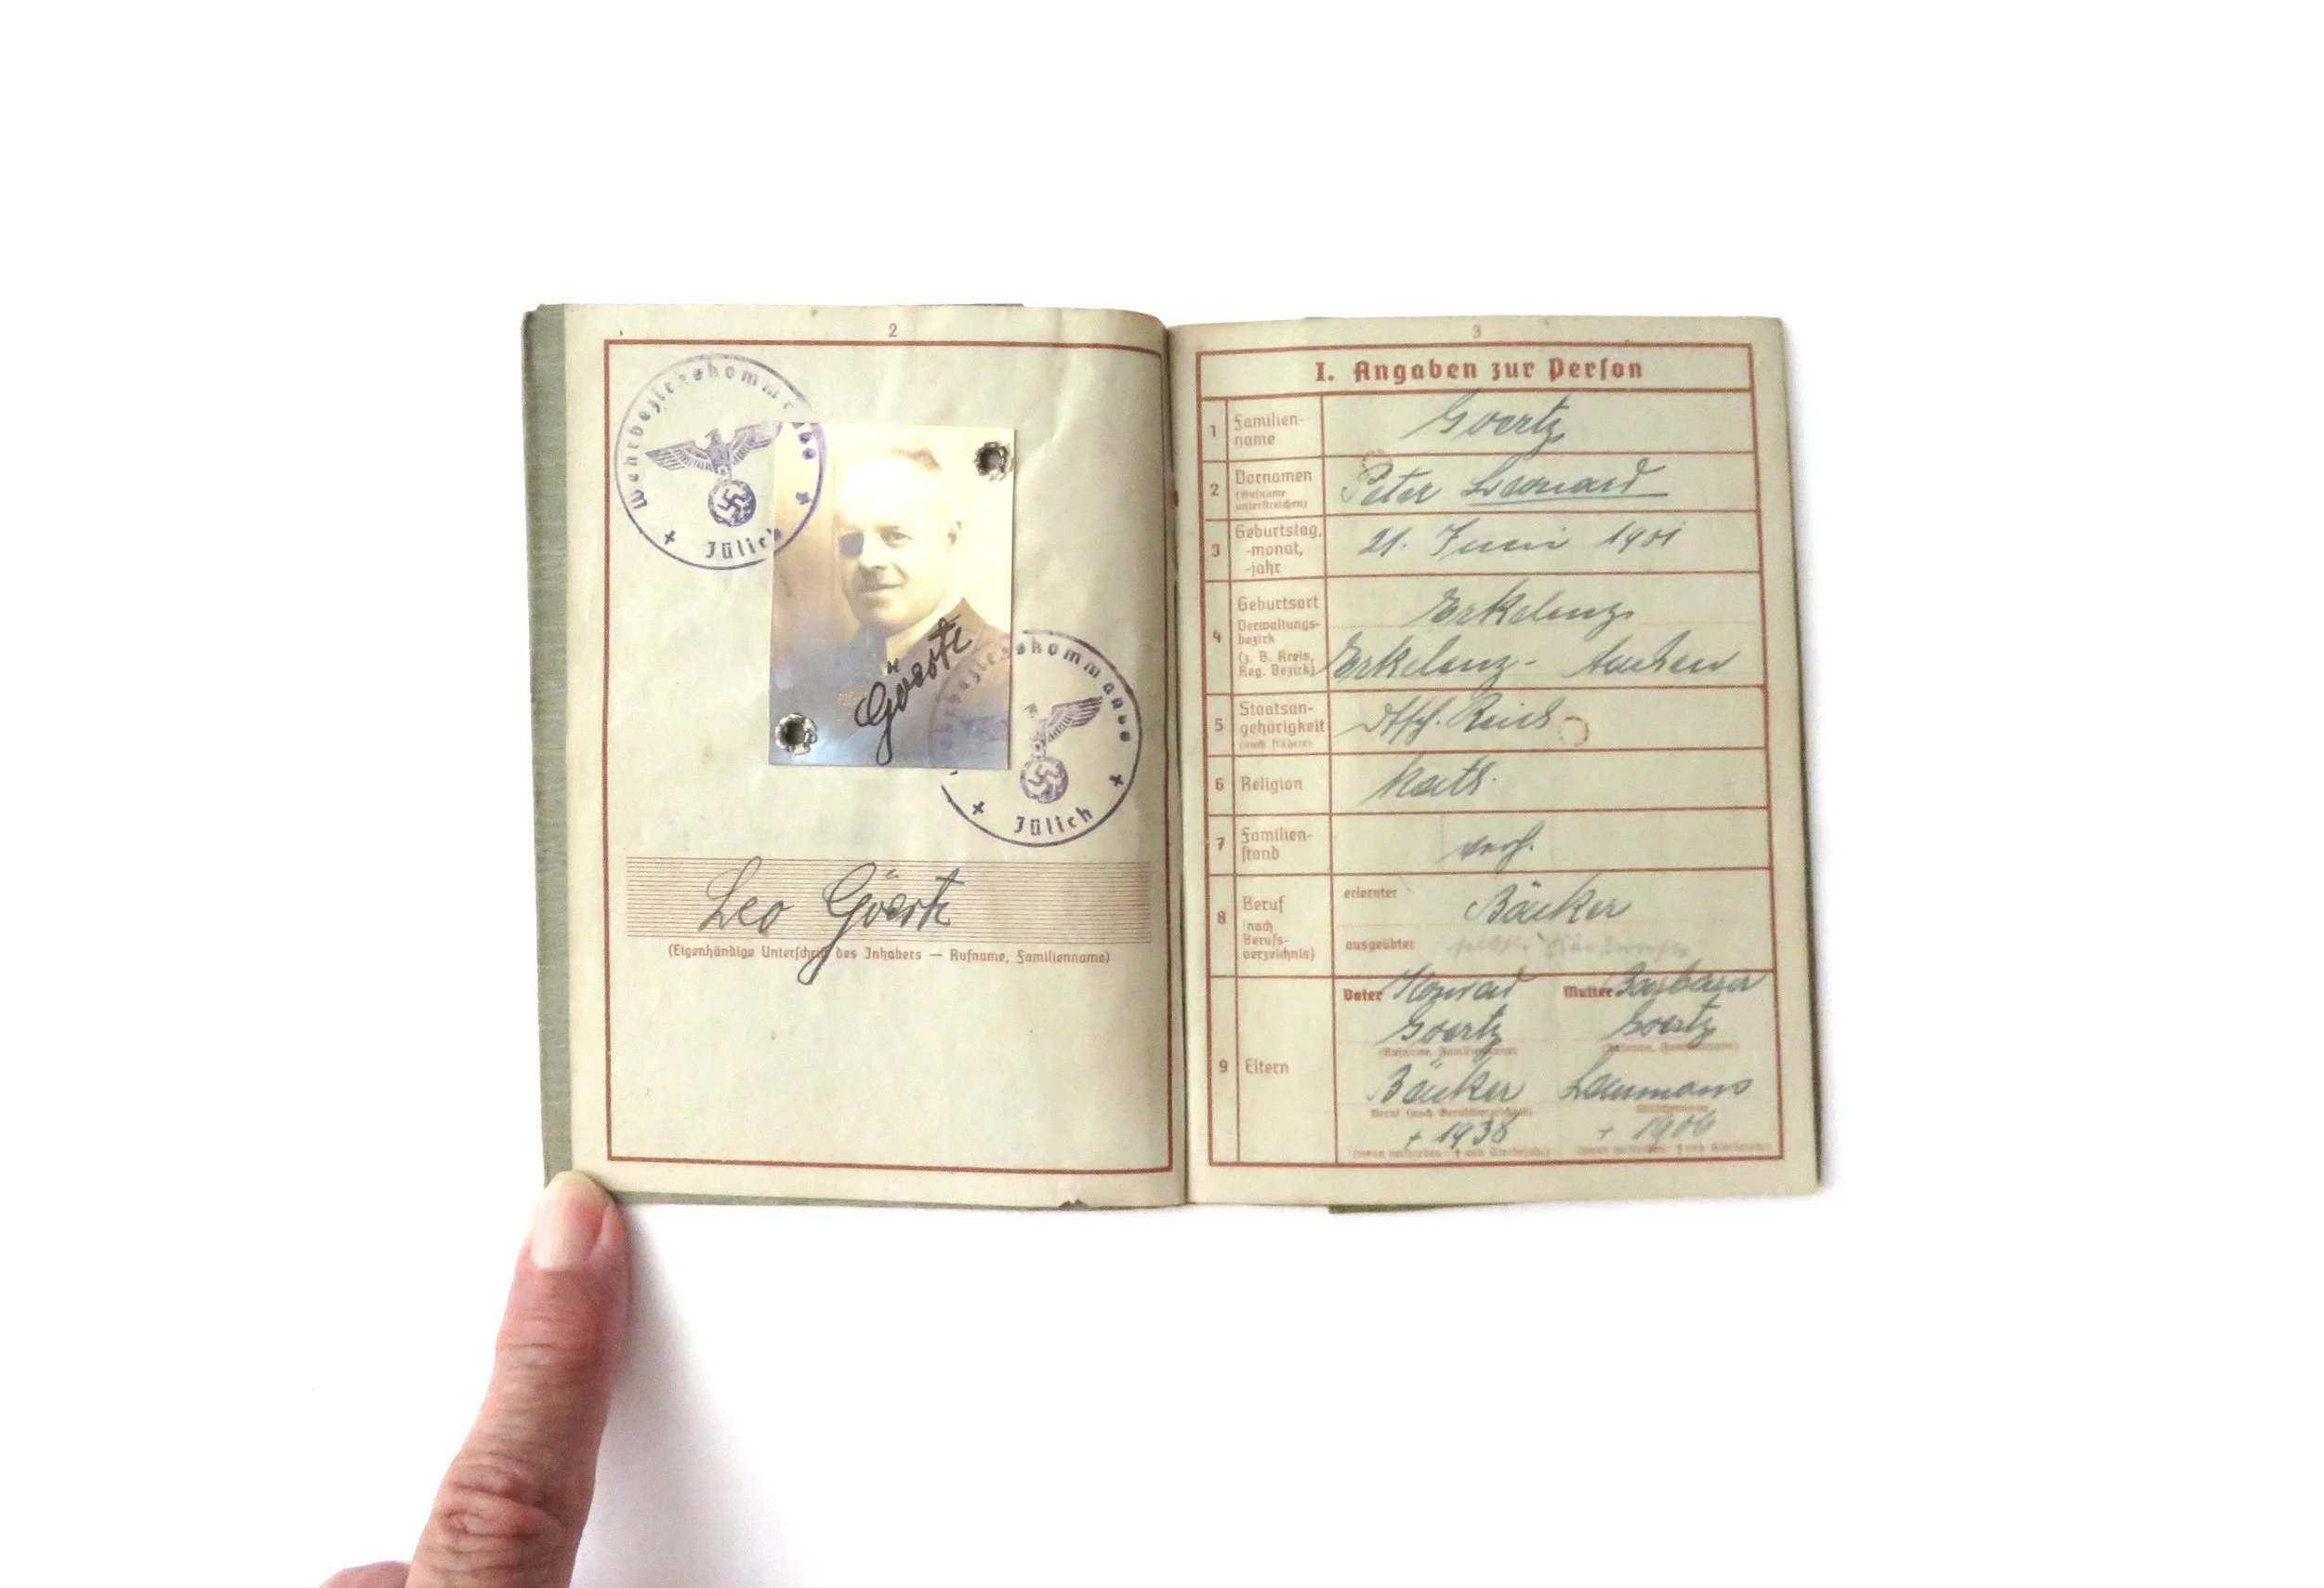 2
Wehrbezirkskommando
Jülich
Göertz
Wehrbezirkskommando
Jülich
Leo Göertz
(Eigenhändige Unterschrift des Inhabers — Rufname, Familienname)
3
I. Angaben zur Person
1 Familien-
name
Goertz
2 Vornamen
(Rufname
unterstreichen)
Peter Leonard
3 Geburtstag,
-monat,
-jahr
21. Juni 1901
4 Geburtsort
Verwaltungs-
bezirk
(z. B. Kreis,
Reg. Bezirk)
Erkelenz
Erkelenz - Aachen
5 Staatsan-
gehörigkeit
(auch frühere)
Dtsch. Reich
6 Religion
Kath.
7 Familien-
stand
verh.
8 Beruf
(nach
Berufs-
verzeichnis)
erlernter
Bäcker
ausgeübter
9 Eltern
Vater Konrad
Goertz
(Rufname, Familienname)
Bäcker
Beruf (nach Berufsverzeichnis)
+ 1938
(wenn verstorben † und Sterbejahr)
Mutter Barbara
Goertz
(Rufname, Familienname)
Laumans
Mädchenname
+ 1906
(wenn verstorben † und Sterbejahr)